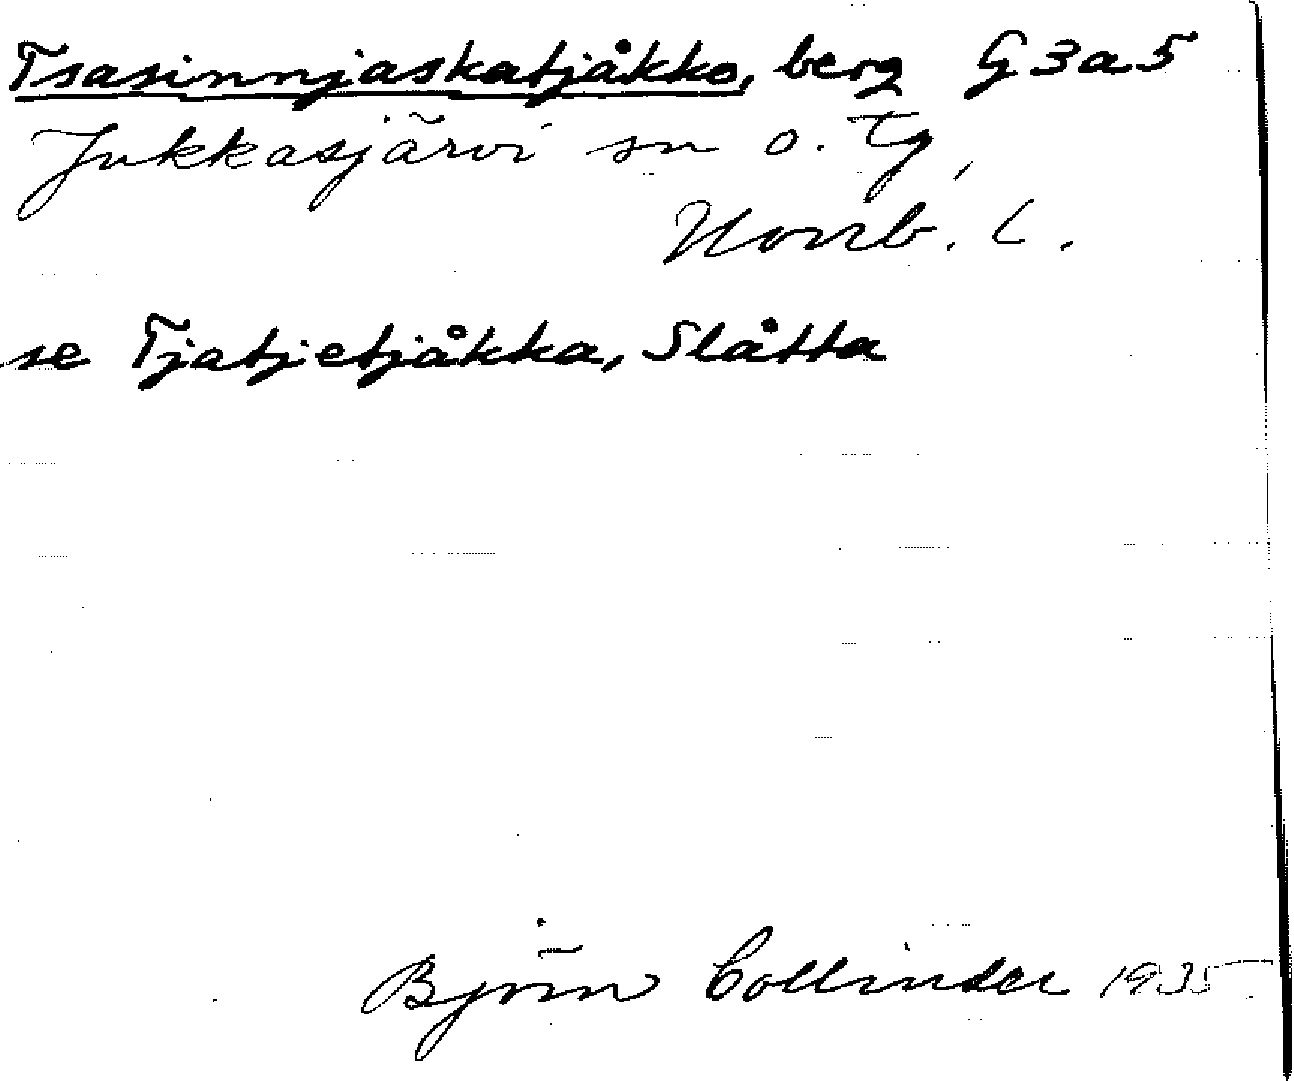 Tsasinnjaskatjåkko, berg G3a5
Jukkasjärvi sn o. tg,
Norrb. l.
se Tjatjetjåkka, Slåtta
Björn Collinder 1935